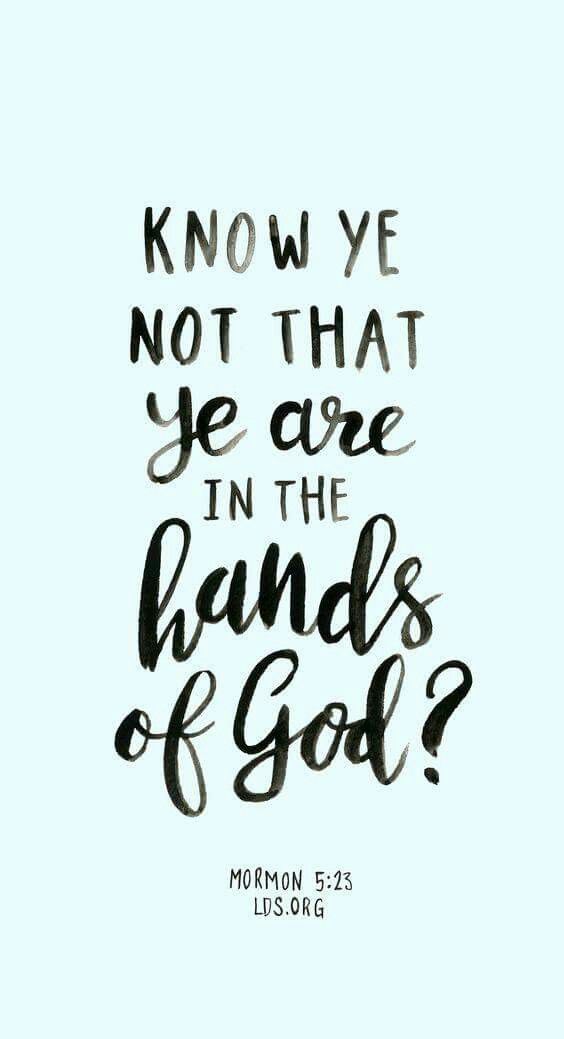 KNOW YE
NOT THAT
ye are
IN THE
hands
of God?
MORMON 5:23
LDS.ORG